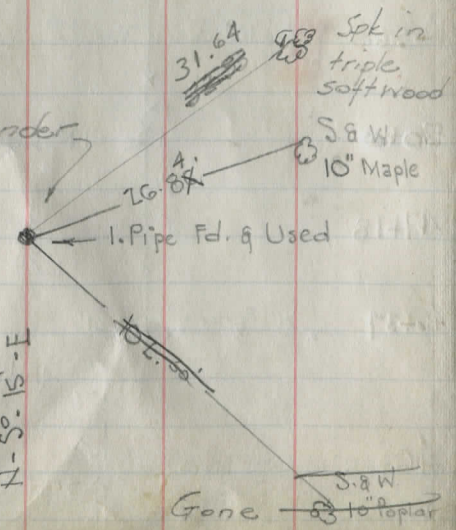 31.64
Spk in
triple
softwood
S & W
10" Maple
26.84
I. Pipe Fd. & Used
N-5°-15'-E
S. & W
10" Poplar
Gone